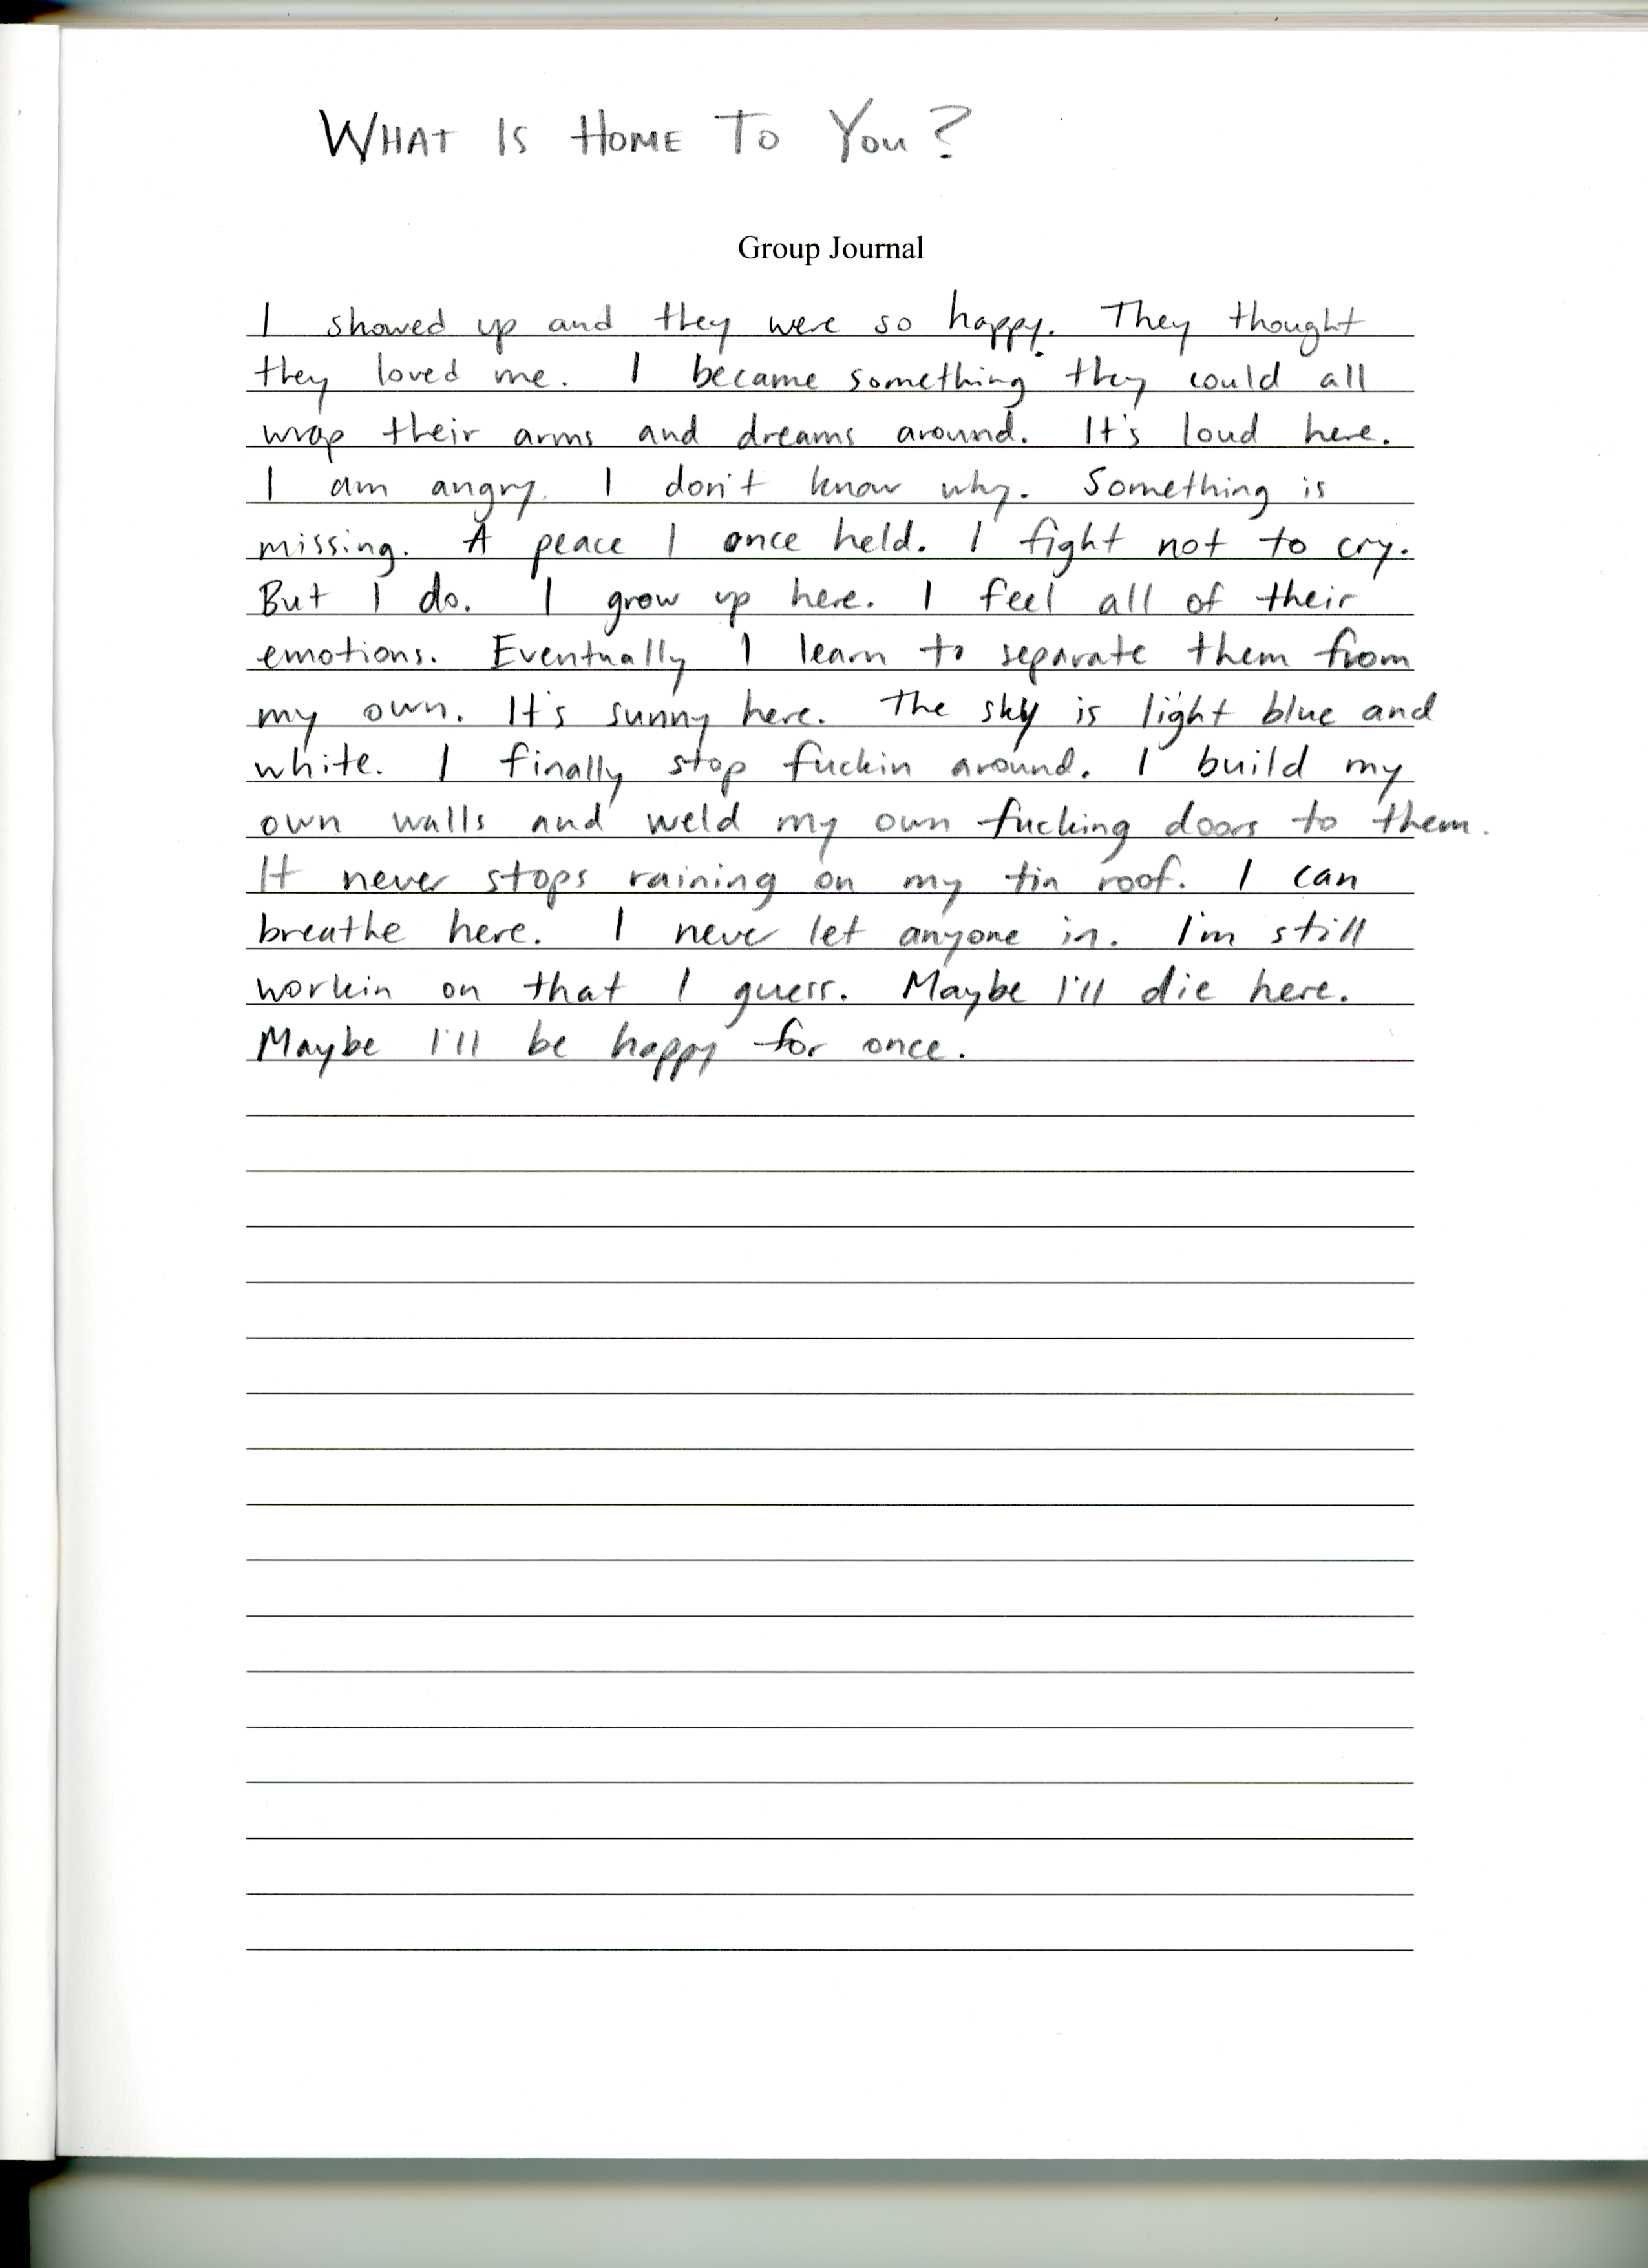 WHAT IS HOME TO YOU?
Group Journal
I showed up and they were so happy. They thought
they loved me. I became something they could all
wrap their arms and dreams around. It's loud here.
I am angry. I don't know why. Something is
missing. A peace I once held. I fight not to cry.
But I do. I grow up here. I feel all of their
emotions. Eventually I learn to separate them from
my own. It's sunny here. The sky is light blue and
white. I finally stop fuckin around. I build my
own walls and weld my own fucking doors to them.
It never stops raining on my tin roof. I can
breathe here. I never let anyone in. I'm still
workin on that I guess. Maybe I'll die here.
Maybe I'll be happy for once.